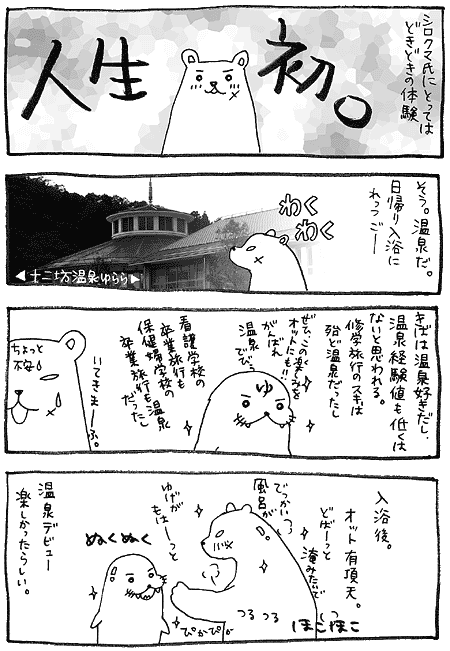 シロクマ氏にとっては
どきどきの体験
人生初。
そう。温泉だ。
日帰り入浴に
れっつごー
わく
わく
◀十二坊温泉ゆらら▶
きばは温泉好きだし、
温泉経験値も低くは
ないと思われる。
修学旅行のスキーは
殆ど温泉だったし
ぜひ、この楽しみを
オットにも!!
がんばれ
温泉
でびう
ゆ
看護学校の
卒業旅行も
保健婦学校の
卒業旅行も温泉
だったし
いてきまーふ。
ちょっと
不安
入浴後。
オット有頂天。
どばーっと
湯みたいで
でっかいっ
風呂が
ゆげが
もはーっと
ぬくぬく
ぴかぴか
つるつる
ほこほこ
温泉デビュー
楽しかったらしい。